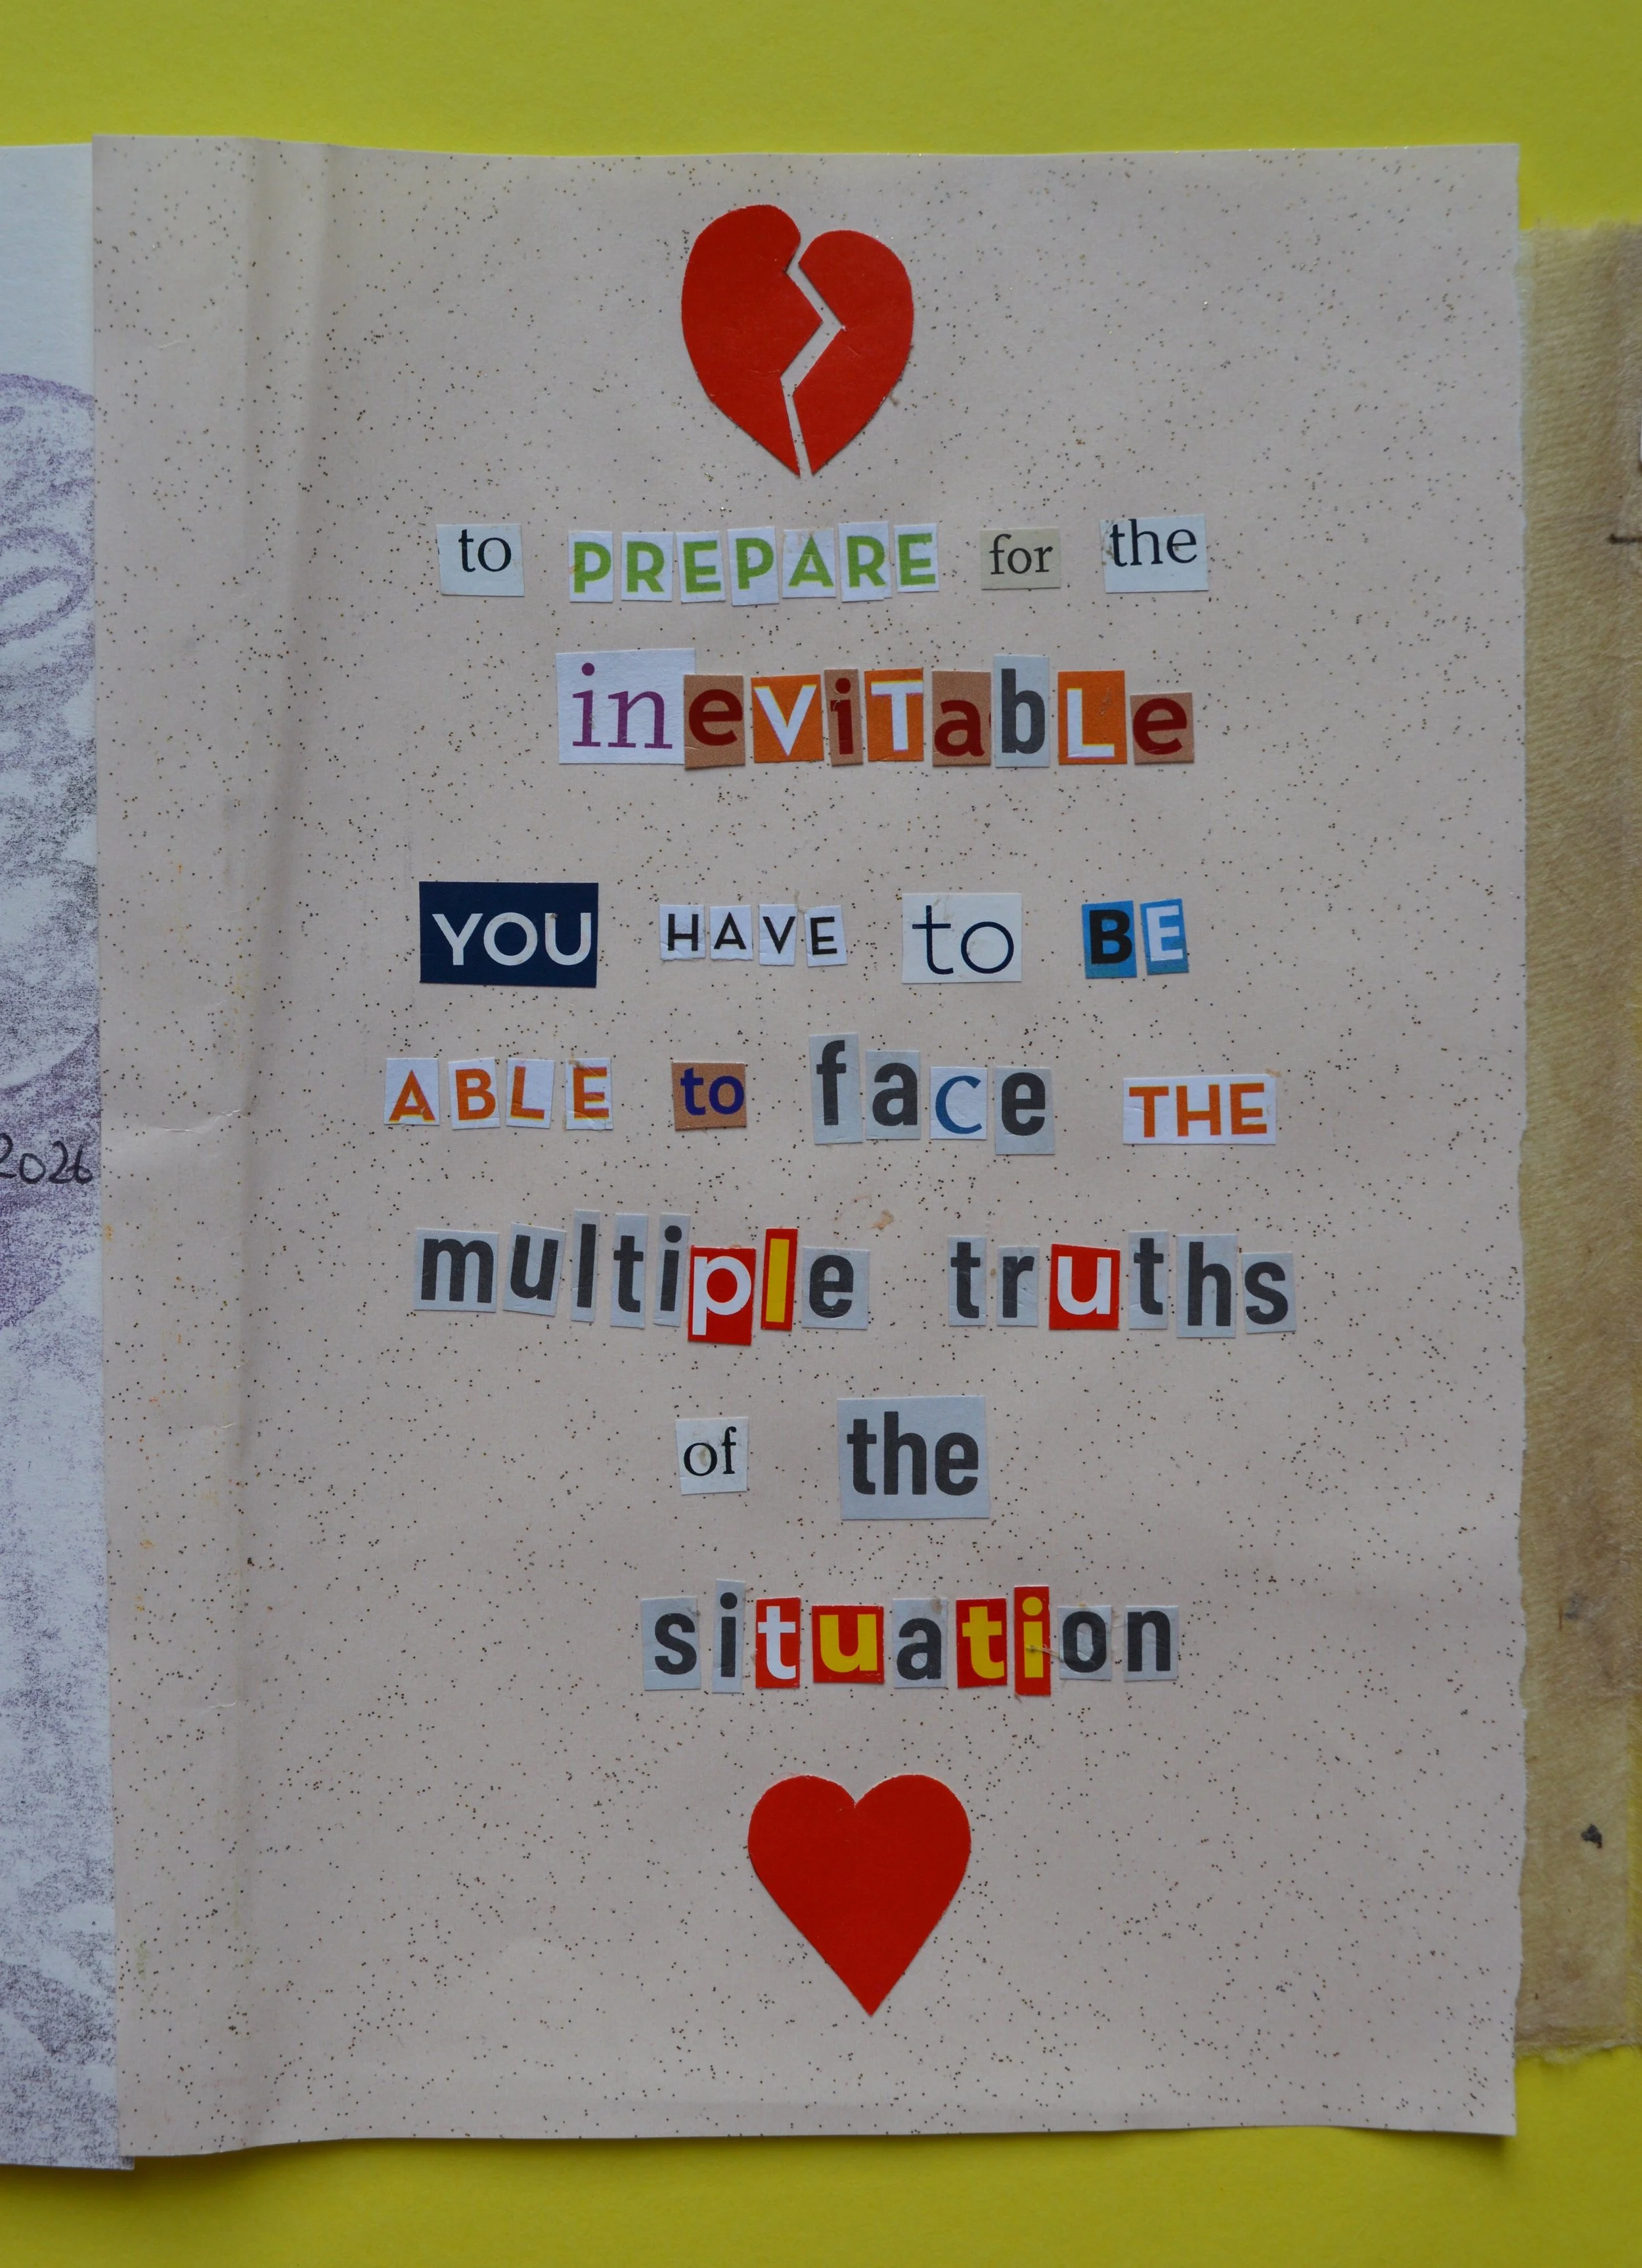 to PREPARE for the
ineViTabLe
YOU HAVE to BE
ABLE to face THE
multiple truths
of the
situation
2026